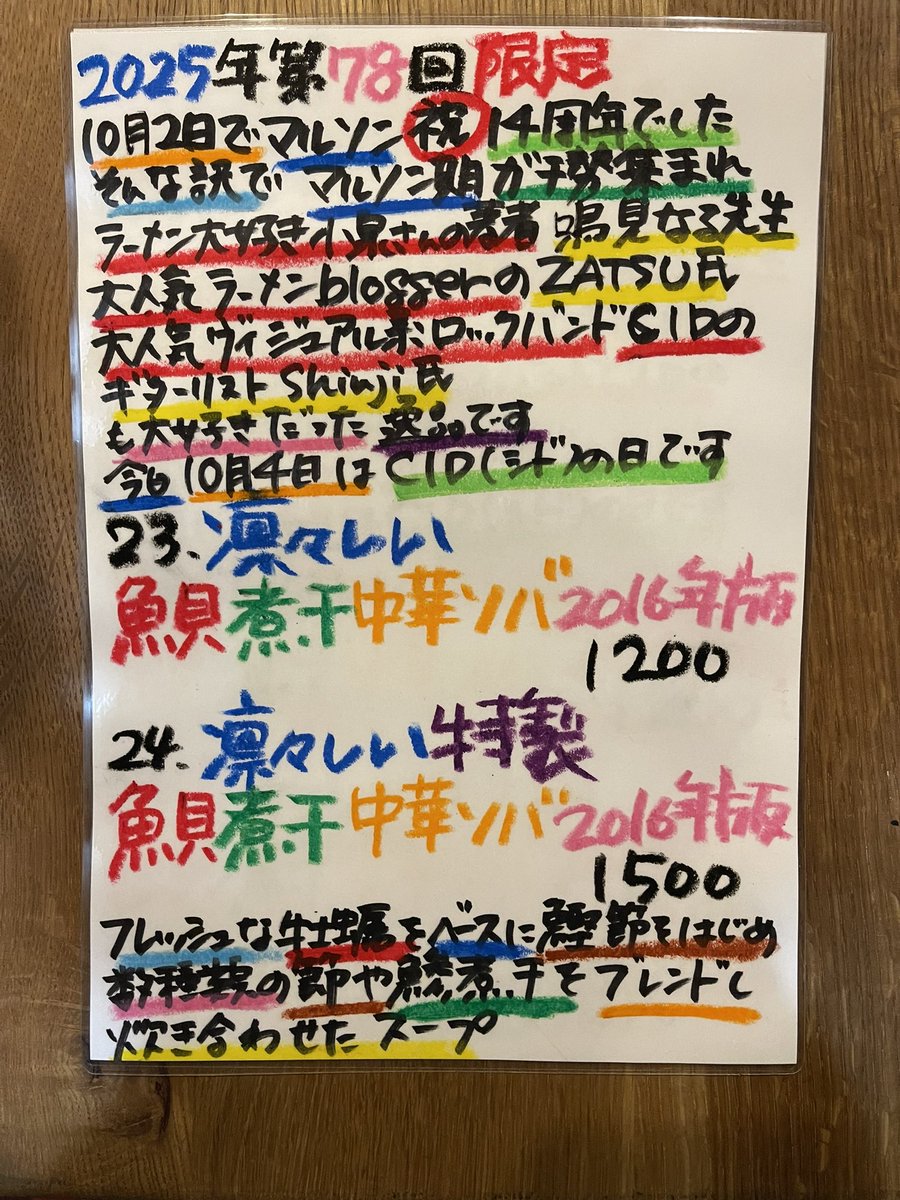 2025年第78回限定
10月2日でマルソン祝14周年でした
そんな訳でマルソン娘ガチ勢集まれ
ラーメン大好き小泉さんの著者 鳴見なる先生
大人気ラーメンbloggerのZATSU氏
大人気ヴィジュアル系ロックバンドCIDの
ギターリストShinji氏
も大好きだった逸品です
今日10月4日はCID(シド)の日です
23.凛々しい
鮊煮干中華ソバ2016年版
1200
24.凛々しい特製
鮊煮干中華ソバ2016年版
1500
フレッシュな牡蠣をベースに鰹節をはじめ
数種類の節や鯵煮干をブレンドし
炊き合わせたスープ